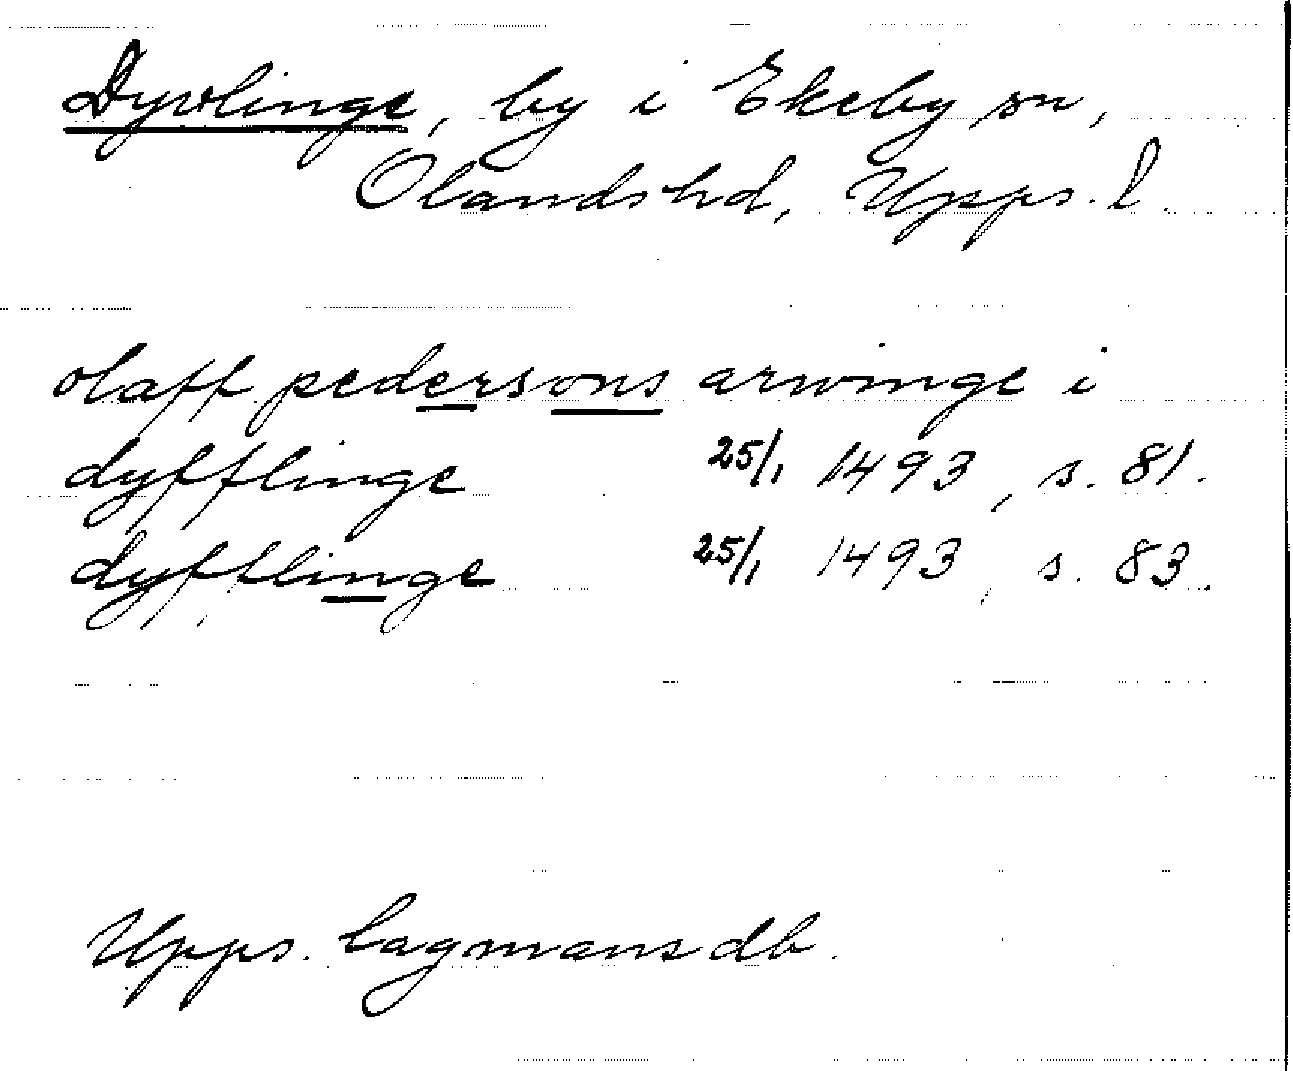 Dyvlinge, by i Ekeby sn,
Olandshd, Upps. l.
olaff pedersons arwinge i
dyfflinge 25/1 1493, s. 81.
dyfflinge 25/1 1493, s. 83.
Upps. lagmansdb.